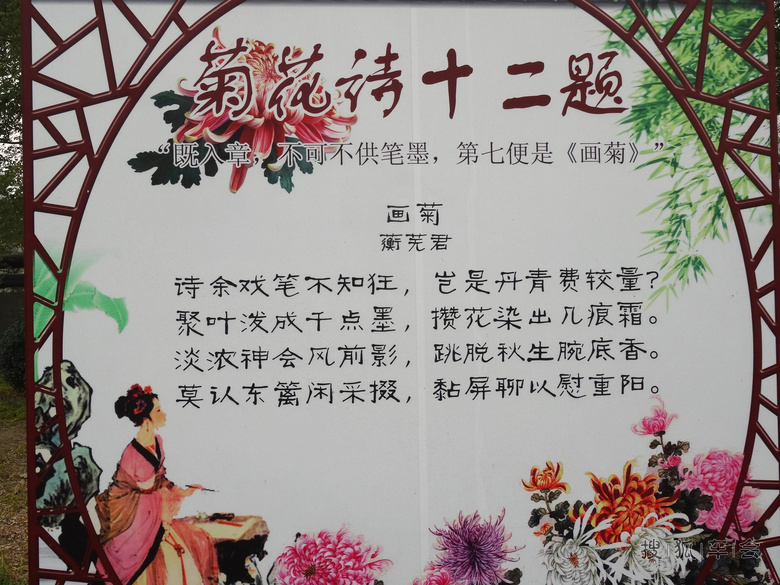 菊花诗十二题
“既入章，不可不供笔墨，第七便是《画菊》”
画菊
蘅芜君
诗余戏笔不知狂，岂是丹青费较量？
聚叶泼成千点墨，攒花染出几痕霜。
淡浓神会风前影，跳脱秋生腕底香。
莫认东篱闲采掇，黏屏聊以慰重阳。